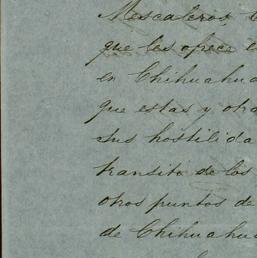 Mescaleros
que les ofrece
en Chihuahua
que estas y otra
sus hostilida
transito de los
otros puntos de
de Chihuahua